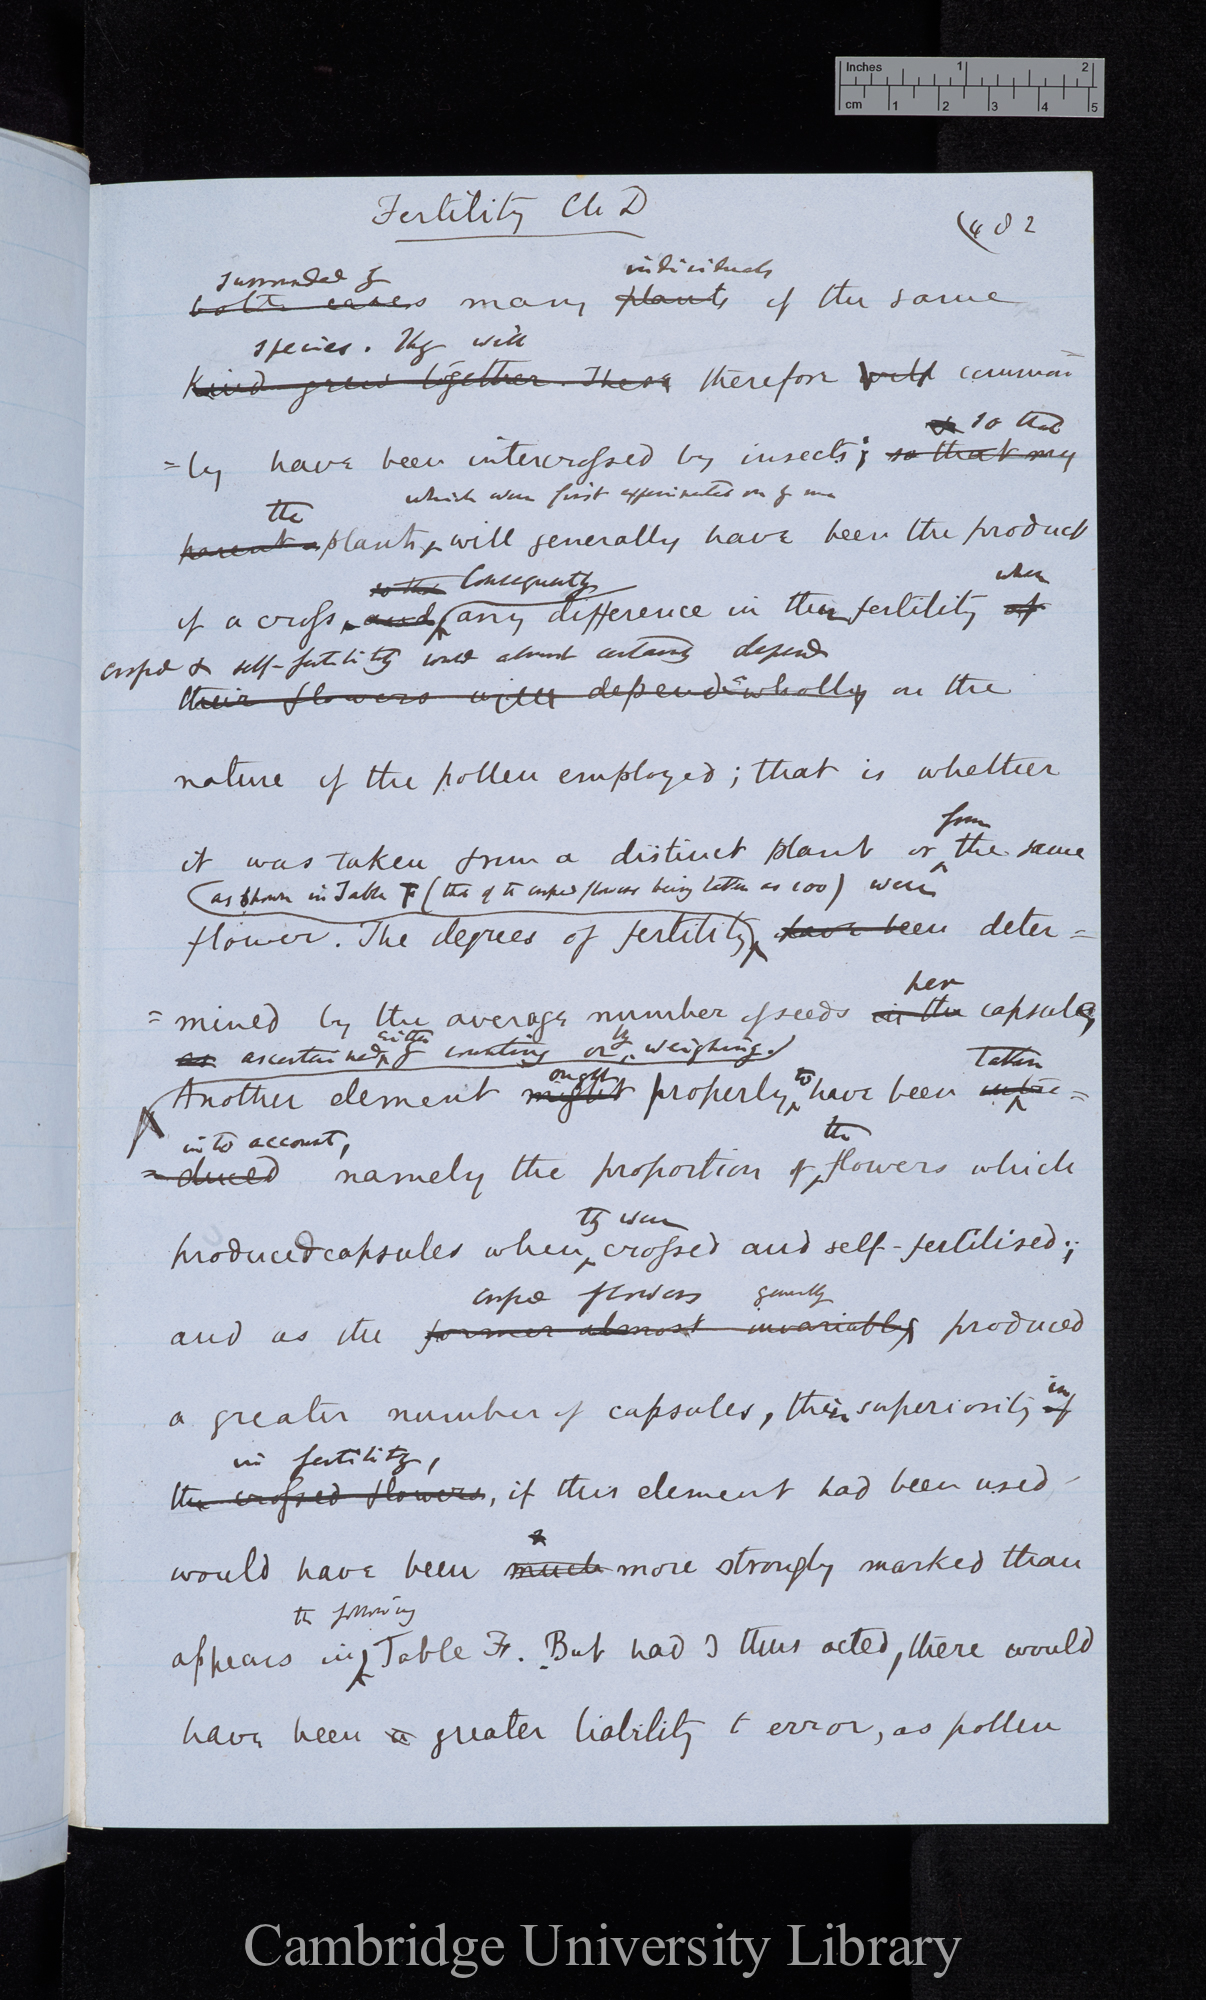 Inches 1 2
cm 1 2 3 4 5
Fertility Ch D
(482
surrounded by individuals
both cases many plants of the same
species. They will
kind grew together. These therefore will common
=ly have been intercrossed by insects; so that my
so that
the which were first experimented on by me
parent-plants, will generally have been the product
so that Consequently when
of a cross, and any difference in their fertility of
crossed & self-fertility would almost certainly depend
their flowers will depend wholly on the
nature of the pollen employed; that is whether
from
it was taken from a distinct plant or the same
(as shown in Table F (that of the crossed flowers being taken as 100) were
flower. The degrees of fertility, have been deter=
per
=mined by the average number of seeds in the capsule,
as ascertained either by counting or by weighing.)
ought to taken
Another element might properly have been intro=
into account, the
=duced namely the proportion of flowers which
they were
produced capsules when crossed and self-fertilised;
crossed flowers generally
and as the former almost invariably produced
in
a greater number of capsules, their superiority of
in fertility,
the crossed flowers, if this element had been used
would have been much more strongly marked than
the following
appears in Table F. But had I thus acted, there would
have been a greater liability to error, as pollen
Cambridge University Library